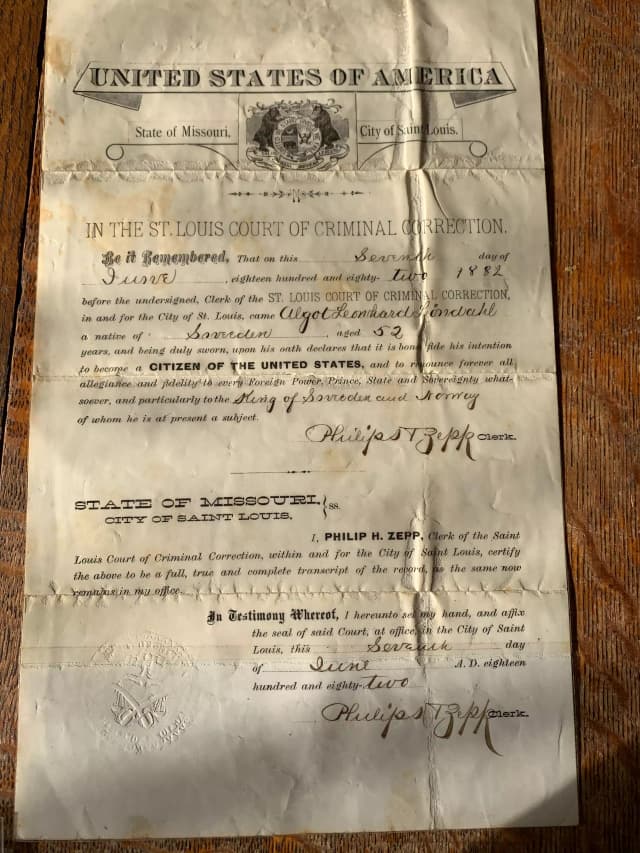 UNITED STATES OF AMERICA
State of Missouri. City of Saint Louis.
IN THE ST. LOUIS COURT OF CRIMINAL CORRECTION.
Be it Remembered, That on this Seventh day of
June, eighteen hundred and eighty-two 1882
before the undersigned, Clerk of the ST. LOUIS COURT OF CRIMINAL CORRECTION,
in and for the City of St. Louis, came Algot Leonhard
a native of Sweden, aged 52
years, and being duly sworn, upon his oath declares that it is bona fide his intention
to become a CITIZEN OF THE UNITED STATES, and to renounce forever all
allegiance and fidelity to every Foreign Power, Prince, State and Sovereignty what-
soever, and particularly to the King of Sweden and Norway
of whom he is at present a subject.
Philip H Zepp Clerk.
STATE OF MISSOURI, } ss.
CITY OF SAINT LOUIS.
I, PHILIP H. ZEPP, Clerk of the Saint
Louis Court of Criminal Correction, within and for the City of Saint Louis, certify
the above to be a full, true and complete transcript of the record, as the same now
remains in my office.
In Testimony Whereof, I hereunto set my hand, and affix
the seal of said Court, at office, in the City of Saint
Louis, this Seventh day
of June A.D. eighteen
hundred and eighty-two
Philip H Zepp Clerk.